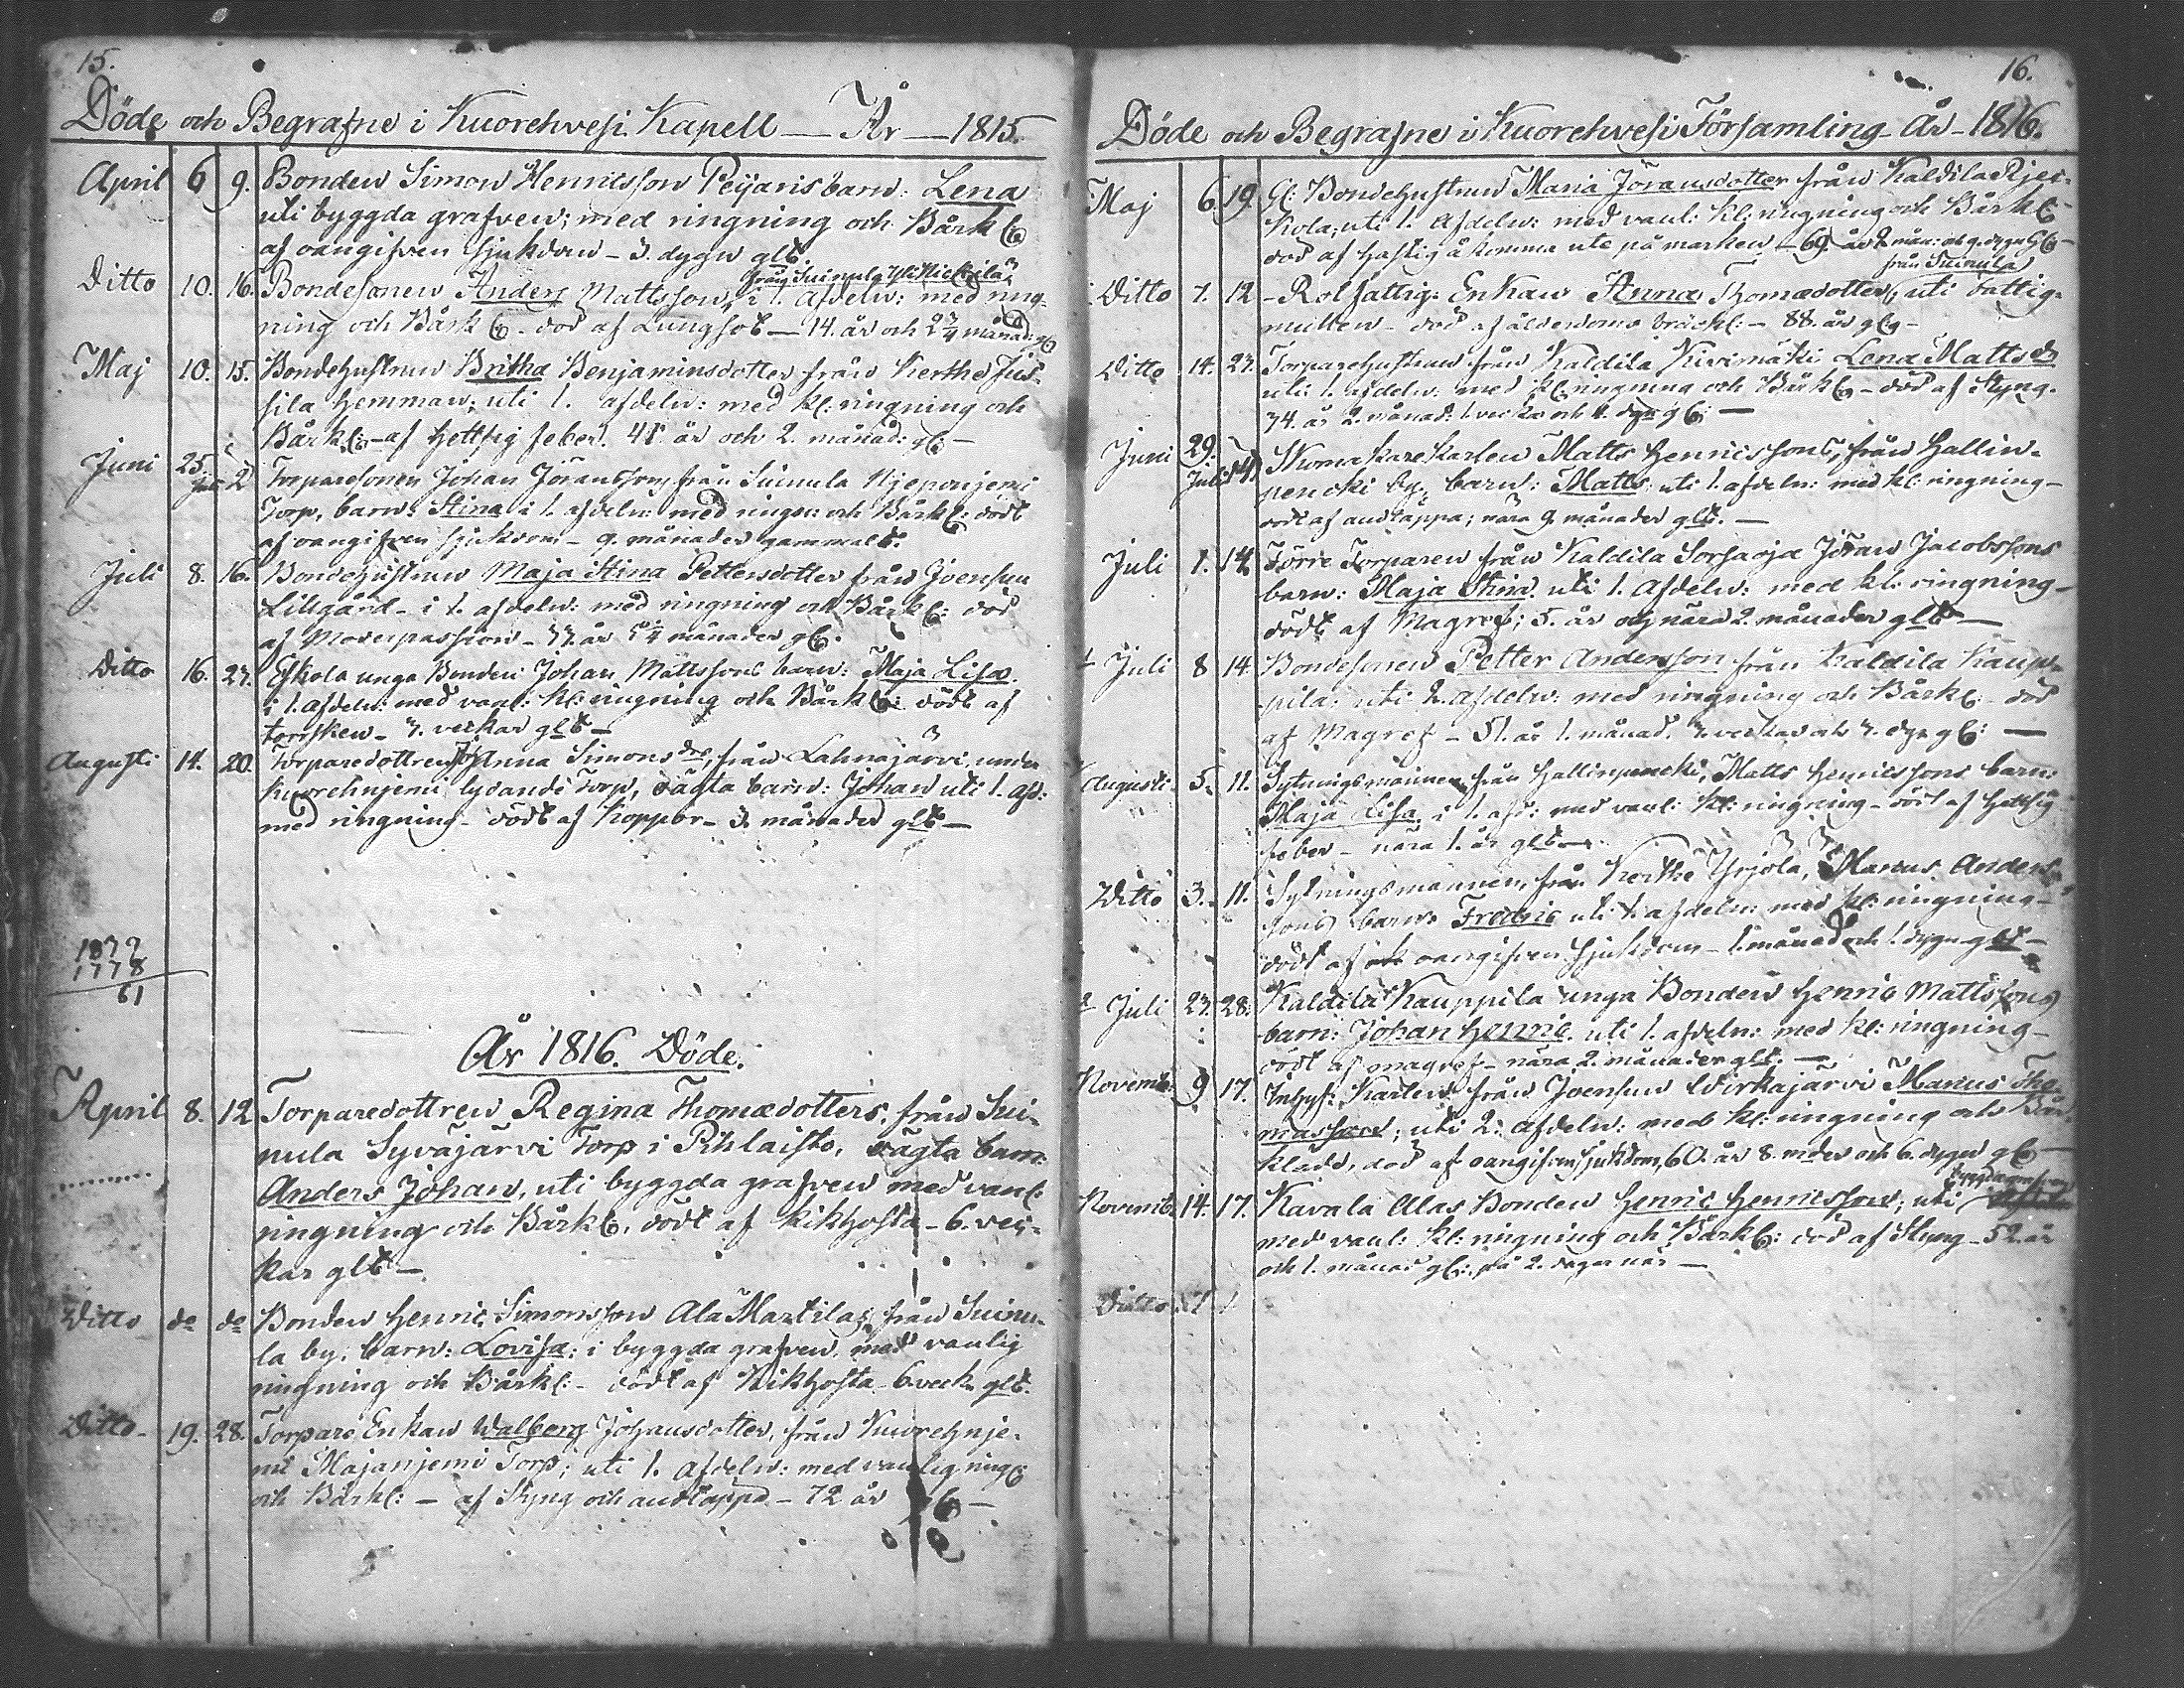 15.
Döde och Begrafne i Kuorehvesi Kapell — År — 1815.
April 6 9. Bonden Simon Henricsson Peijaris barn: Lena
uti byggda grafven; med ringning och Bårkl:
af oangifven sjukdom — 3. dygn glt.
från Suinula
Ditto 10. 16. Bondesonen Anders Mattsson, i 1. afdeln: med ring-
ning och Bårkl: död af Lungsot — 14. år och månad: gl:
Maj 10. 15. Bondehustrun Britha Benjaminsdotter från Kerthe Jus-
sila Hemman; uti 1. afdeln: med kl: ringning och
Bårkl: — af Hettsig feber. år och 2. månad: gl: —
Juni 25. Juli 2 Torparesonen Johan Jöransons från Suinula
Torp, barn: Stina i 1. afdeln: med ringn: och Bårkl: dödt
af oangifven sjukdom — 9. månader gammalt.
Juli 8. 16. Bondehustrun Maja Stina Pettersdotter från Joensuu
Lillgård — i 1. afdeln: med ringning och Bårkl: död
af Moderpassion — år månader gl.
Ditto 16. 23. Eskola unga Bonden Johan Mattssons barn: Maja Lisa
i 1. afdeln: med vanl: kl: ringning och Bårkl: dödt af
torsken — 3. veckor glt —
Augusti 14. 20. Torparedottren Anna Simons drs, från Lahnajärvi, under
Kuorehnjemi lydande Torp, oägta barn: Johan uti 1. afd:
med ringning — dödt af Koppor — 3. månader glt —
1837
1778
61
År 1816. Döde.
April 8. 12 Torparedottren Regina Thomædotters, från Sui-
nula Syväjärvi Torp i Pihlaisto, oägta barn:
Anders Johan, uti byggda grafven med vanl:
ringning och Bårkl, dödt af Kikhosta — 6. vec-
kor glt —
Ditto do do Bonden Henric Simonsson Ala Martilas, från Suinu-
la by, barn: Lovisa; i byggda grafven, med vanlig
ringning och Bårkl: — dödt af Kikhosta 6 veck. glt.
Ditto — 19. 28. Torpare Enkan Walborg Johansdotter, från Kuorehnje-
mi Majanjemi Torp; uti 1. afdeln: med vanlig ringn:
och Bårkl: — af Styng och andtäppa — 72 år gl —
16.
Döde och Begrafne i Kuorehvesi Församling — År — 1816.
Maj 6. 19 Gl: Bondehustrun Maria Jöransdotter från Kaldila Rjei-
kola; uti 1. afdeln: med vanl: kl: ringning och Bårkl:
död af hastig åkomma ute på marken — 69. år 2. mån: och 9. dygn gl: —
från Suinula
Ditto 7. 12 — Rotfattig: Enkan Anna Thomædotter, uti fattig-
mullen — död af ålderdoms bräckl: — 88. år glg —
Ditto 14. 23. Torparehustrun från Kaldila Kivimäki Lena Matts dr
uti 1. afdeln: med kl: ringning och Bårkl: — död af Styng.
74. år 2. månad: 1. vecka och 4. dygn gl: —
Juni 29. Juli 14 Skomakarekarlen Matts Henricssons, från Hallin-
penki by, barn: Matts, uti 1. afdeln: med kl: ringning —
dödt af andtäppa; nära 9. månader glt. —
Juli 1. 14 Förre Torparen från Kaldila Sorsaoja Jöran Jacobssons
barn: Maja Stina uti 1. afdeln: med kl: ringning —
dödt af Magref; 5. år och nära 2. månader glt —
1 Juli 8 14. Bondesonen Petter Andersson från Kaldila Kaup-
pila; uti 2. afdeln: med ringning och Bårkl: — död
af Magref — 51. år 1. månad. 3. veckor och 3. dygn gl: —
Augusti 5. 11. Sytningsmannen från Hallinpencki, Matts Henricssons barn:
Maja Lisa i 1. afd: med vanl: kl: ringning — dödt af Hettsig
feber — nära 1. år glt —
Ditto 3. 11. Sytningsmannen, från Kerthe Yrjölä, Marcus Anders-
sons barn: Fredric uti 1. afdeln: med kl: ringning —
dödt af oangifven sjukdom — 1. månad och 1. dygn glt —
2 Juli 23. 28. Kaldila Kauppila unga Bonden Henric Mattssons
barn: Johan Henric uti 1. afdeln: med kl: ringning —
dödt af magref — nära 2. månader glt. —
Novemb: 9 17. Inhys: Karlen från Joensuu Wirkajärvi Marcus Tho-
masson; uti 2. afdeln: med kl: ringning och Bår-
kläde, död af oangifven sjukdom, 60. år 8. m:der och 6. dygn gl: —
Novemb: 14. 17. Kavala Alas Bonden Henric Henricsson; uti
med vanl: kl: ringning och Bårkl: död af Styng — 52 år
och 1. månad gl: på 2. dagar när —
Ditto